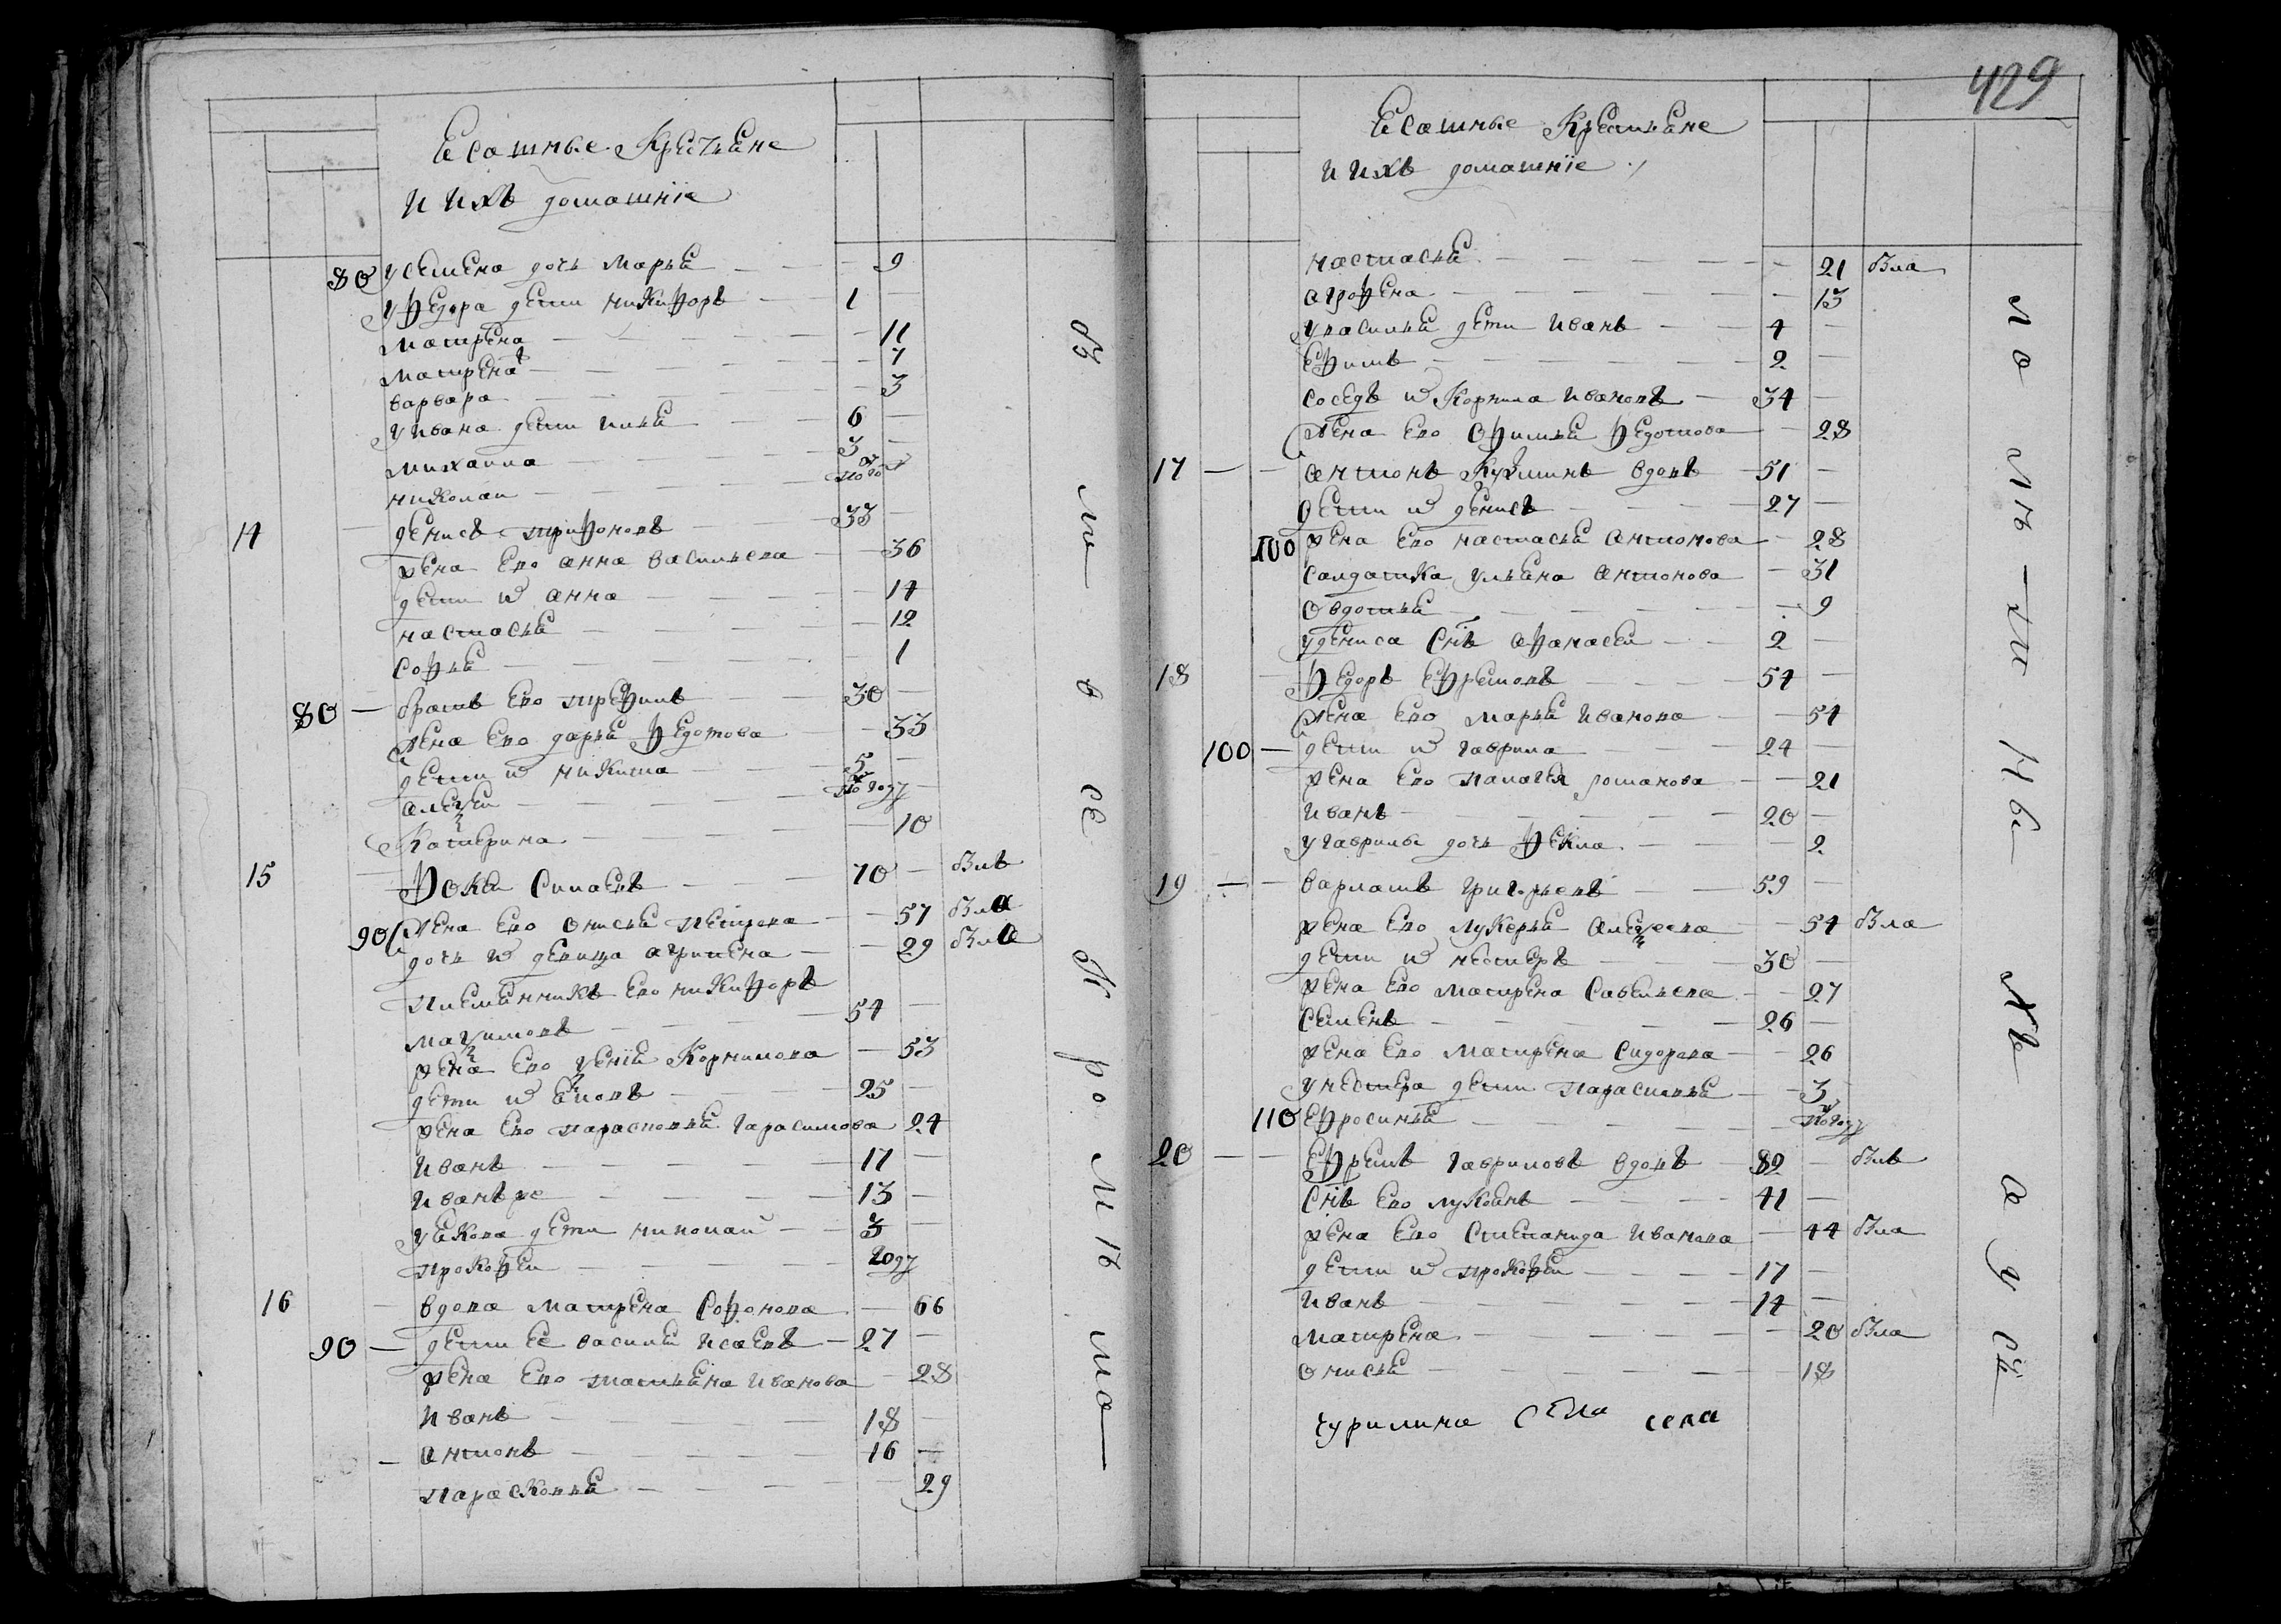 Есашные Крестьяне
и ихъ домашніе
80 у Семена дочь Марья — 9
у Федора дети Никифоръ — 1 —
Матрена — 11
Матрена — 7
Варвара — 3
у Ивана дети Илья — 6 —
Михаила — 3 —
Николаи —
14 — Денисъ Трифоновъ — 33 —
жена ево Анна Васильева — 36
дети их Анна — 14
Настасья — 12
Софья — 1
80 — братъ ево Трефилъ — 30 —
жена ево Дарья Федотова — 33
дети их Никита — 5 —
Алексеи — по году —
Катерина — 10
15 — Фокеи Силаевъ — 70 — былъ
90 жена ево Онисья Петрова — 57 была
дочь их девица Агрипена — 29 была
племянникъ ево Никифоръ
Максимовъ — 54 —
жена ево Ксенія Корнилова — 53
дети их Яковъ — 25 —
жена ево Парасковья Гарасимова 24
Иванъ — 17 —
Иванъ же — 13 —
у Якова дети Николаи — 3 —
Прокофеи — году
16 — вдова Матрена Софонова — 66
90 — дети ее Василеи Исаевъ — 27 —
жена ево Татьяна Иванова — 28
Иванъ — 18 —
Антонъ — 16 —
Парасковья — 29
429
Есашные Крестьяне
и ихъ домашніе
Настасья — 21 была
Агрофена — 13
у Василья дети Иванъ — 4 —
Ефимъ — 2 —
соседъ их Корнила Ивановъ — 34 —
жена ево Офимья Федотова — 28
17 — — Антонъ Кузминъ вдовъ — 51 —
дети их Денисъ — 27 —
100 жена ево Настасья Антонова — 28
салдатка Ульяна Антонова — 31
Овдотья — 9
у Дениса снъ Афанасеи — 2 —
18 — Федоръ Ефремовъ — 54 —
жена ево Марья Иванова — 54
100 — дети их Гаврила — 24 —
жена ево Палагея Романова — 21
Иванъ — 20 —
у Гаврилы дочь Фекла — 2
19 — — Варламъ Григорьевъ — 59 —
жена ево Лукерья Алексеева — 54 была
дети их Нестеръ — 30 —
жена ево Матрена Савельева — 27
Семенъ — 26 —
жена ево Матрена Сидорова — 26
у Нестера дети Парасковья — 3
110 Ефросинья — по году
20 — — Ефремъ Гавриловъ вдовъ — 82 — былъ
снъ ево Лукоянъ — 41 —
жена ево Степанида Иванова — 44 была
дети их Прокофеи — 17 —
Иванъ — 14 —
Матрена — 20 была
Онисья — 18
Чурилина села